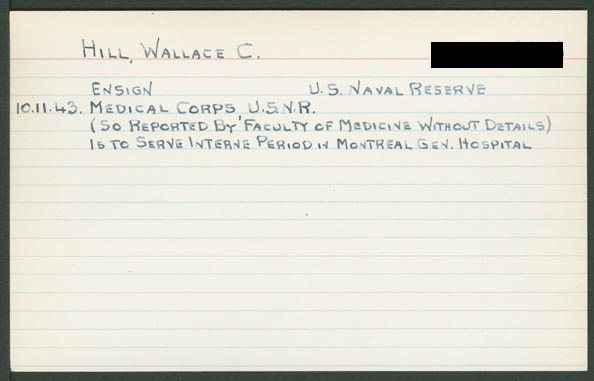 HILL, WALLACE C.
ENSIGN U.S. NAVAL RESERVE
10.11.43. MEDICAL CORPS U.S.N.R.
(SO REPORTED BY FACULTY OF MEDICINE WITHOUT DETAILS)
IS TO SERVE INTERNE PERIOD IN MONTREAL GEN. HOSPITAL